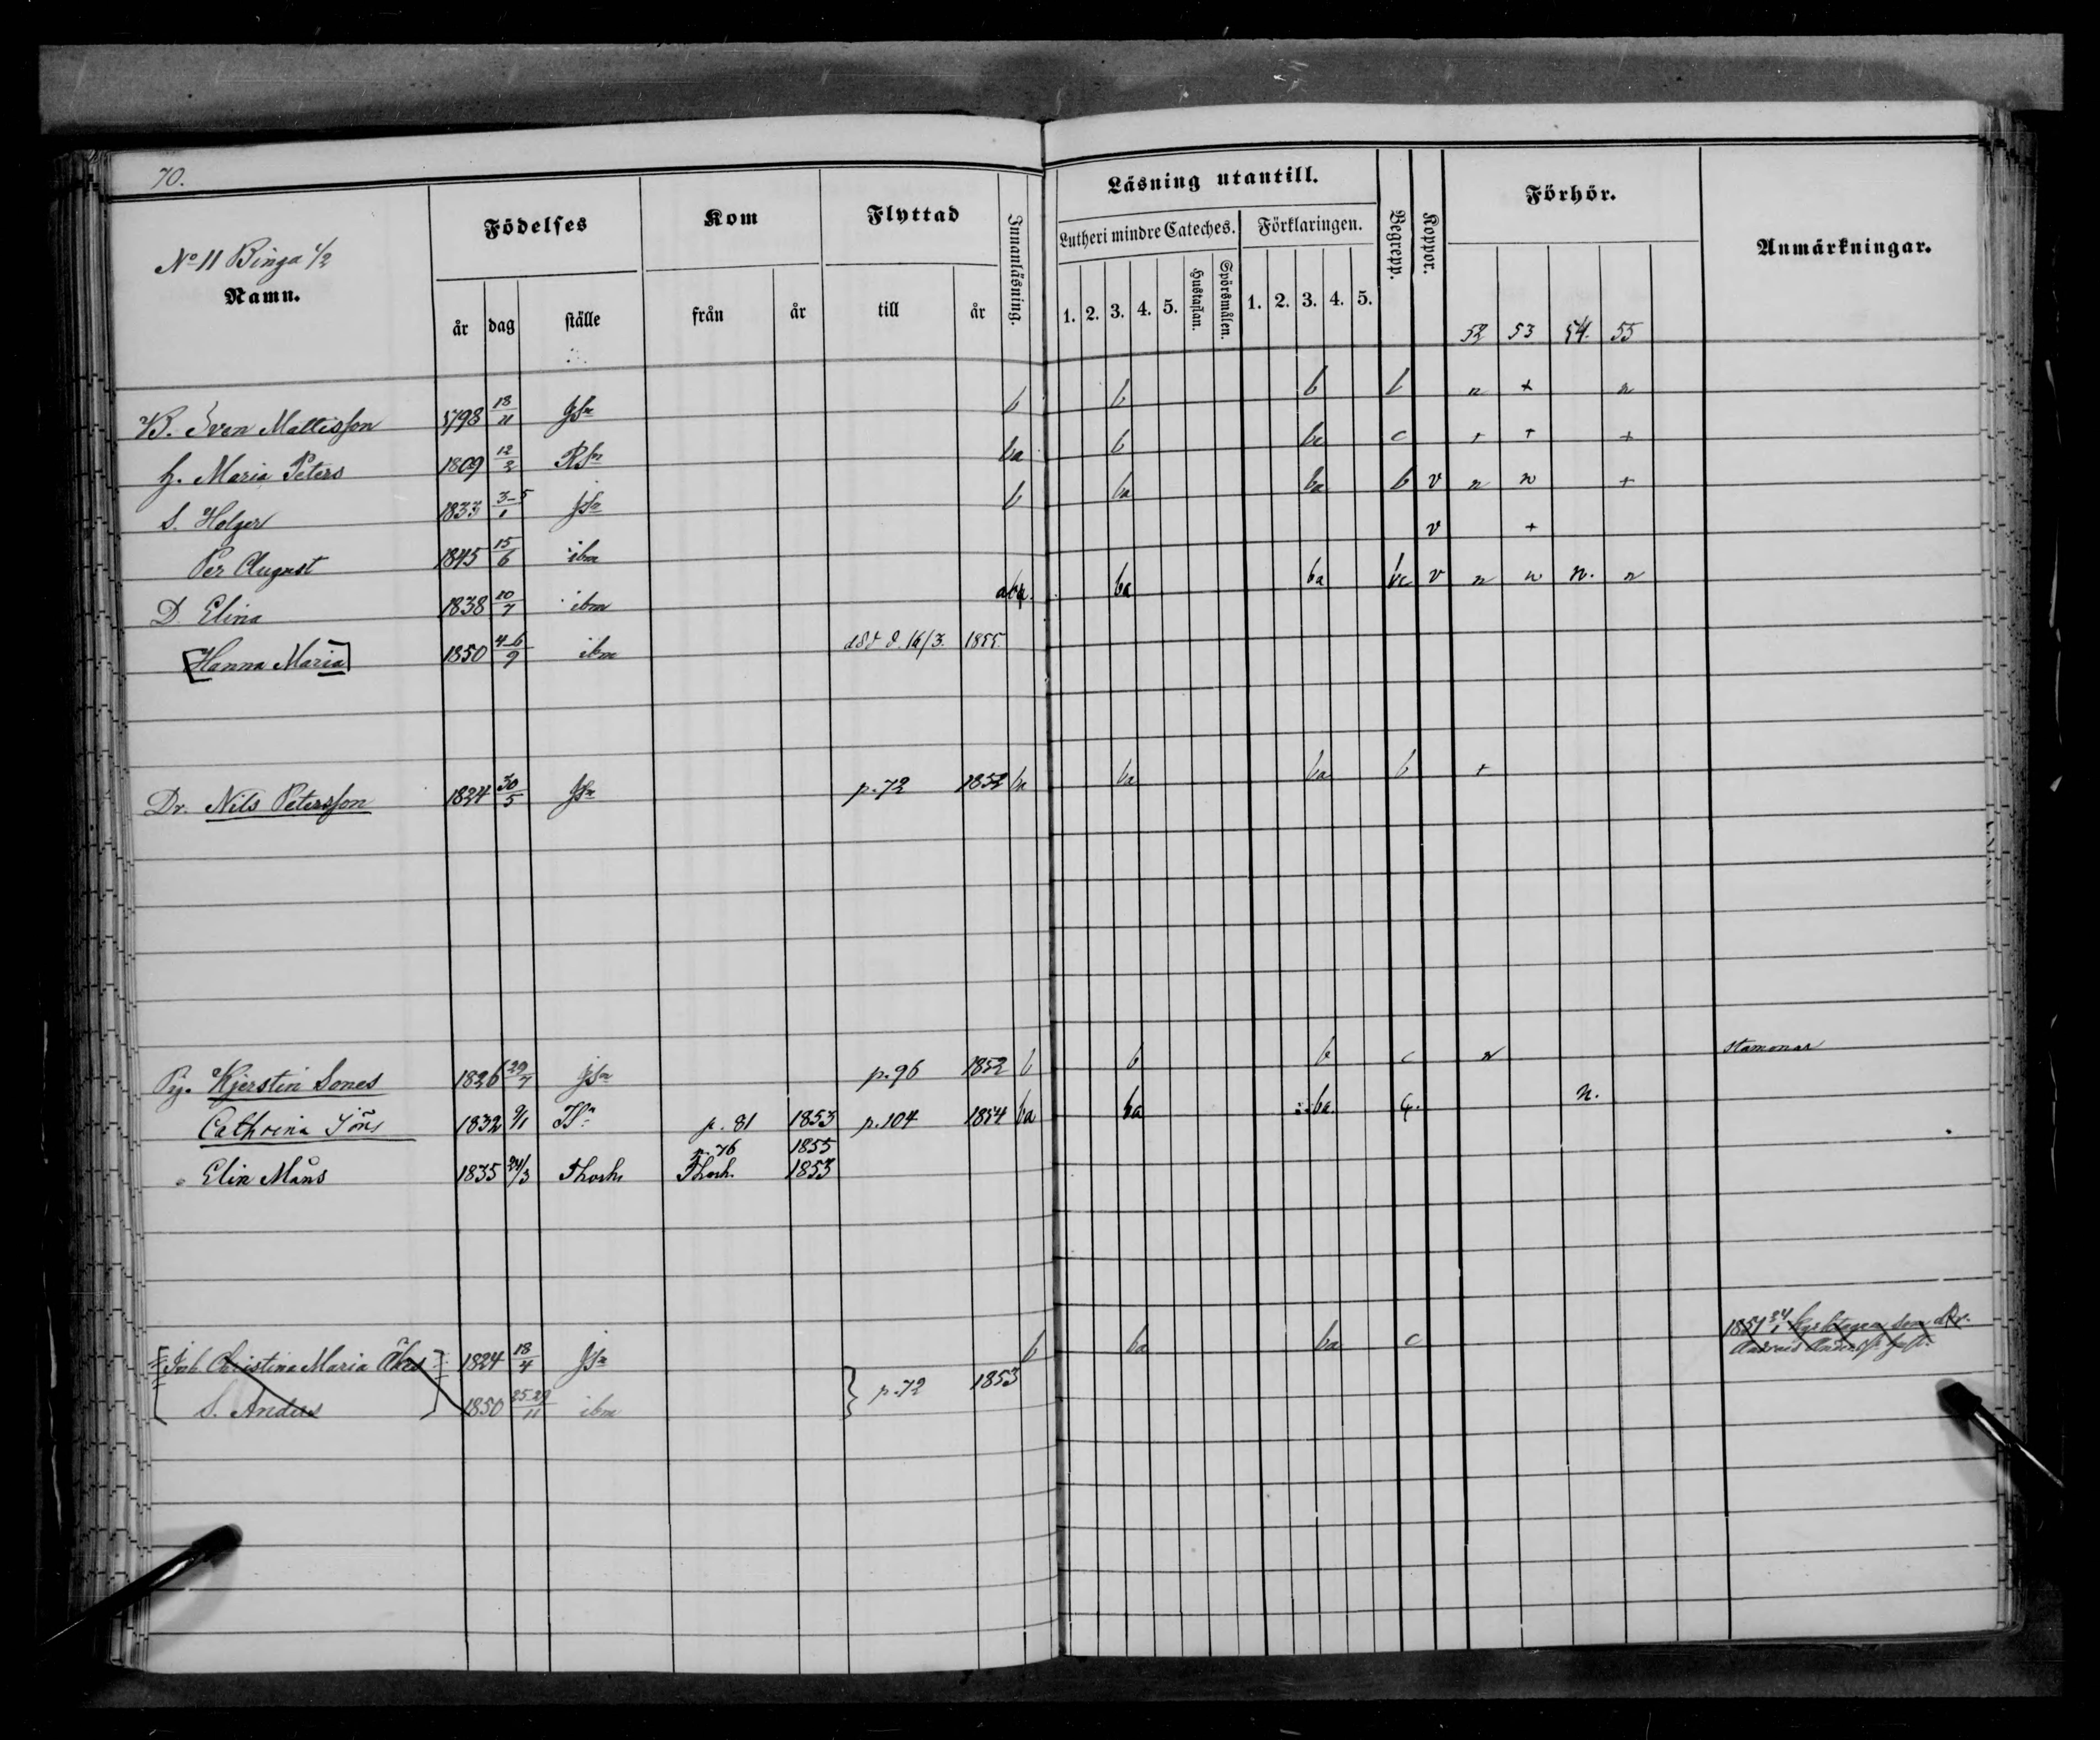 70.
No 11 Binga 1/2
Namn.
Födelses
Kom
Flyttad
Innanläsning.
Läsning utantill.
Begrepp.
Koppor.
Förhör.
Anmärkningar.
år dag ställe från år till år
Lutheri mindre Cateches. Förklaringen.
1. 2. 3. 4. 5. Hustaflan. Spörsmålen. 1. 2. 3. 4. 5.
52 53 54. 55
B. Sven Mattisson 1798 18/11 b b b b n + n
H. Maria Peters 1809 12/2 ba b c + + +
S. Holger 1833 3-5/1 b ba ba b v n n +
Per August 1845 15/6 ibm v +
D. Elina 1838 20/7 ibm aba. ba ba bc v n n n. n
[Hanna Maria] 1850 4-6/9 ibm 16/3. 1855.
Dr. Nils Petersson 1824 30/5 p. 72 1852 ba ba ba b +
Pig. Kjerstin Sones 1826 29/7 p. 96 1852 b b b c n stammar
Cathrina Jöns 1832 9/1 p. 81 1853 p. 104 1854 ba ba ba. c. n.
p. 76 1855
Elin Måns 1835 24/3 Thorh. 1853
Christina Maria 1824 18/4 b ba ba c 1851
S. Anders 1850 25 29/11 ibm } p. 72 1853